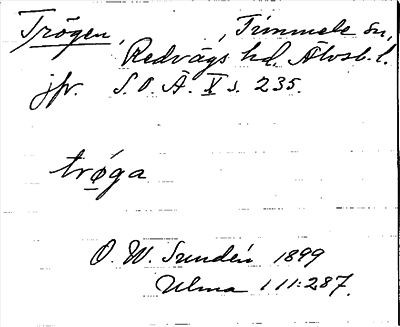 Trögen, , Timmele sn,
Redvägs hd, Älvsb. l.
jfr. S. O. Ä. X s. 235.
trǿga
O. W. Sundén 1899
Ulma 111:287.